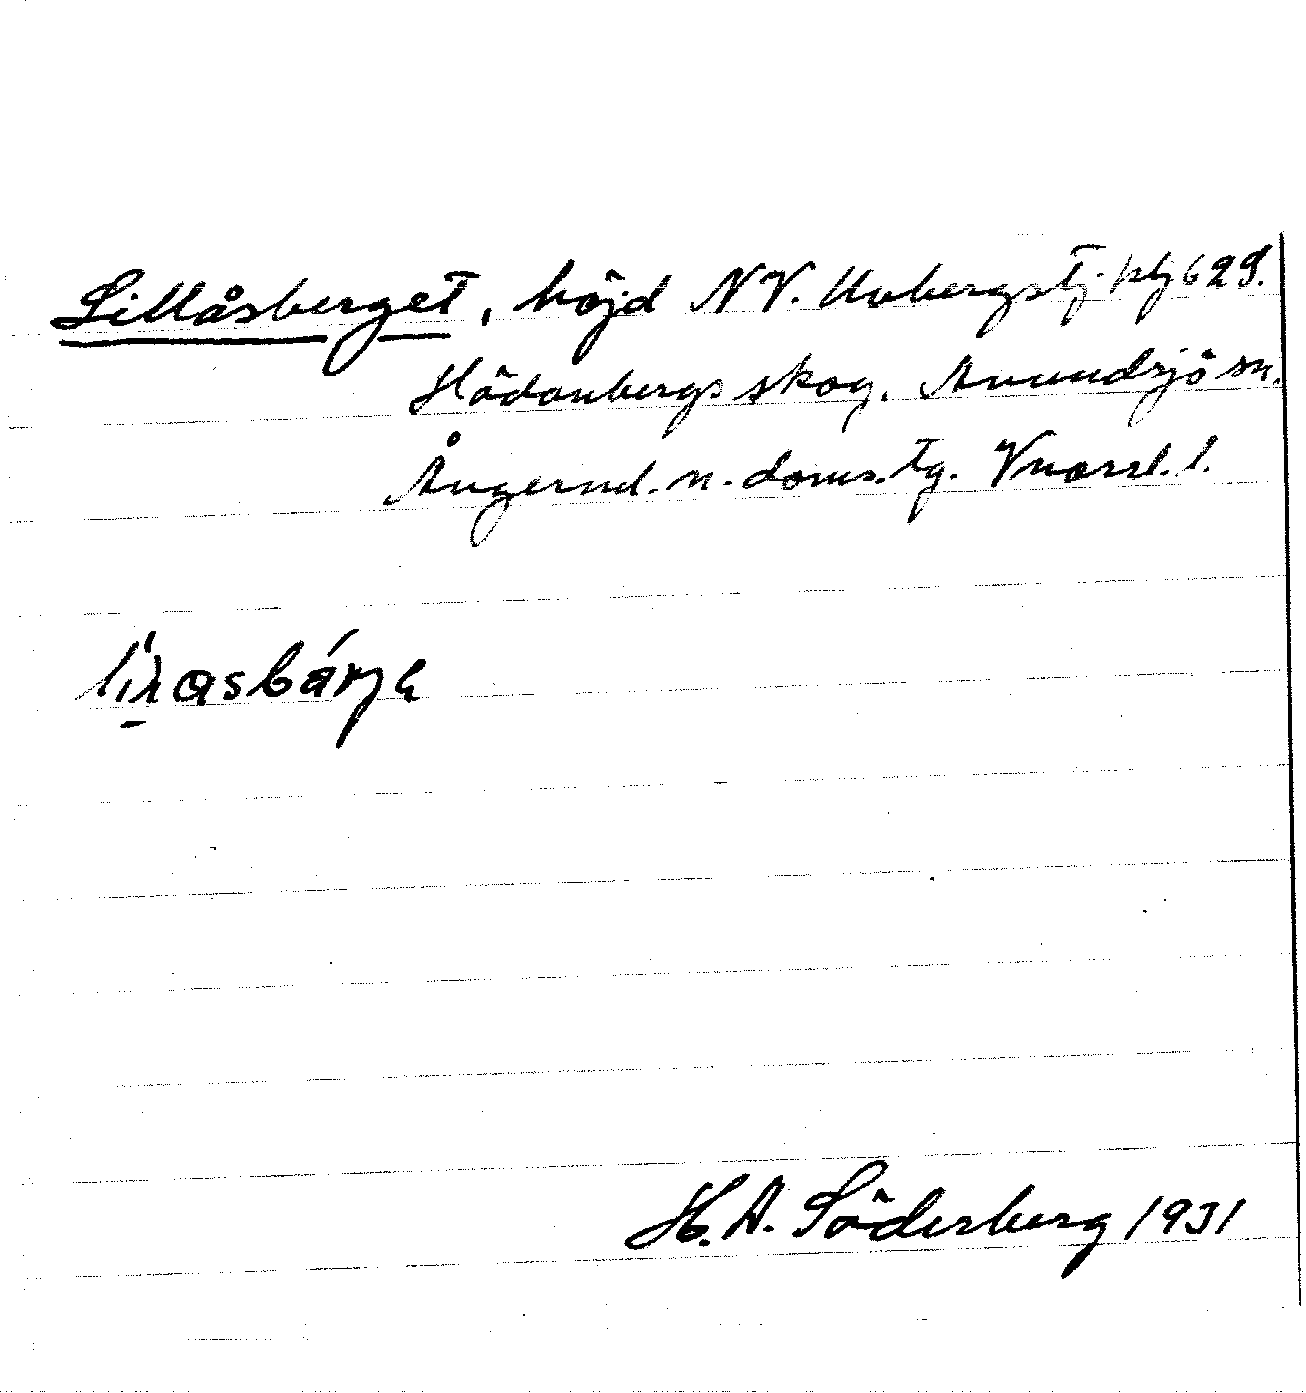 Lillåsberget, höjd NV. Uvbergstj. 629.
Hädanbergs skog, Anundsjö sn.
Ångerml. n. doms. tg. Vnorrl. l.
H. A. Söderberg 1931